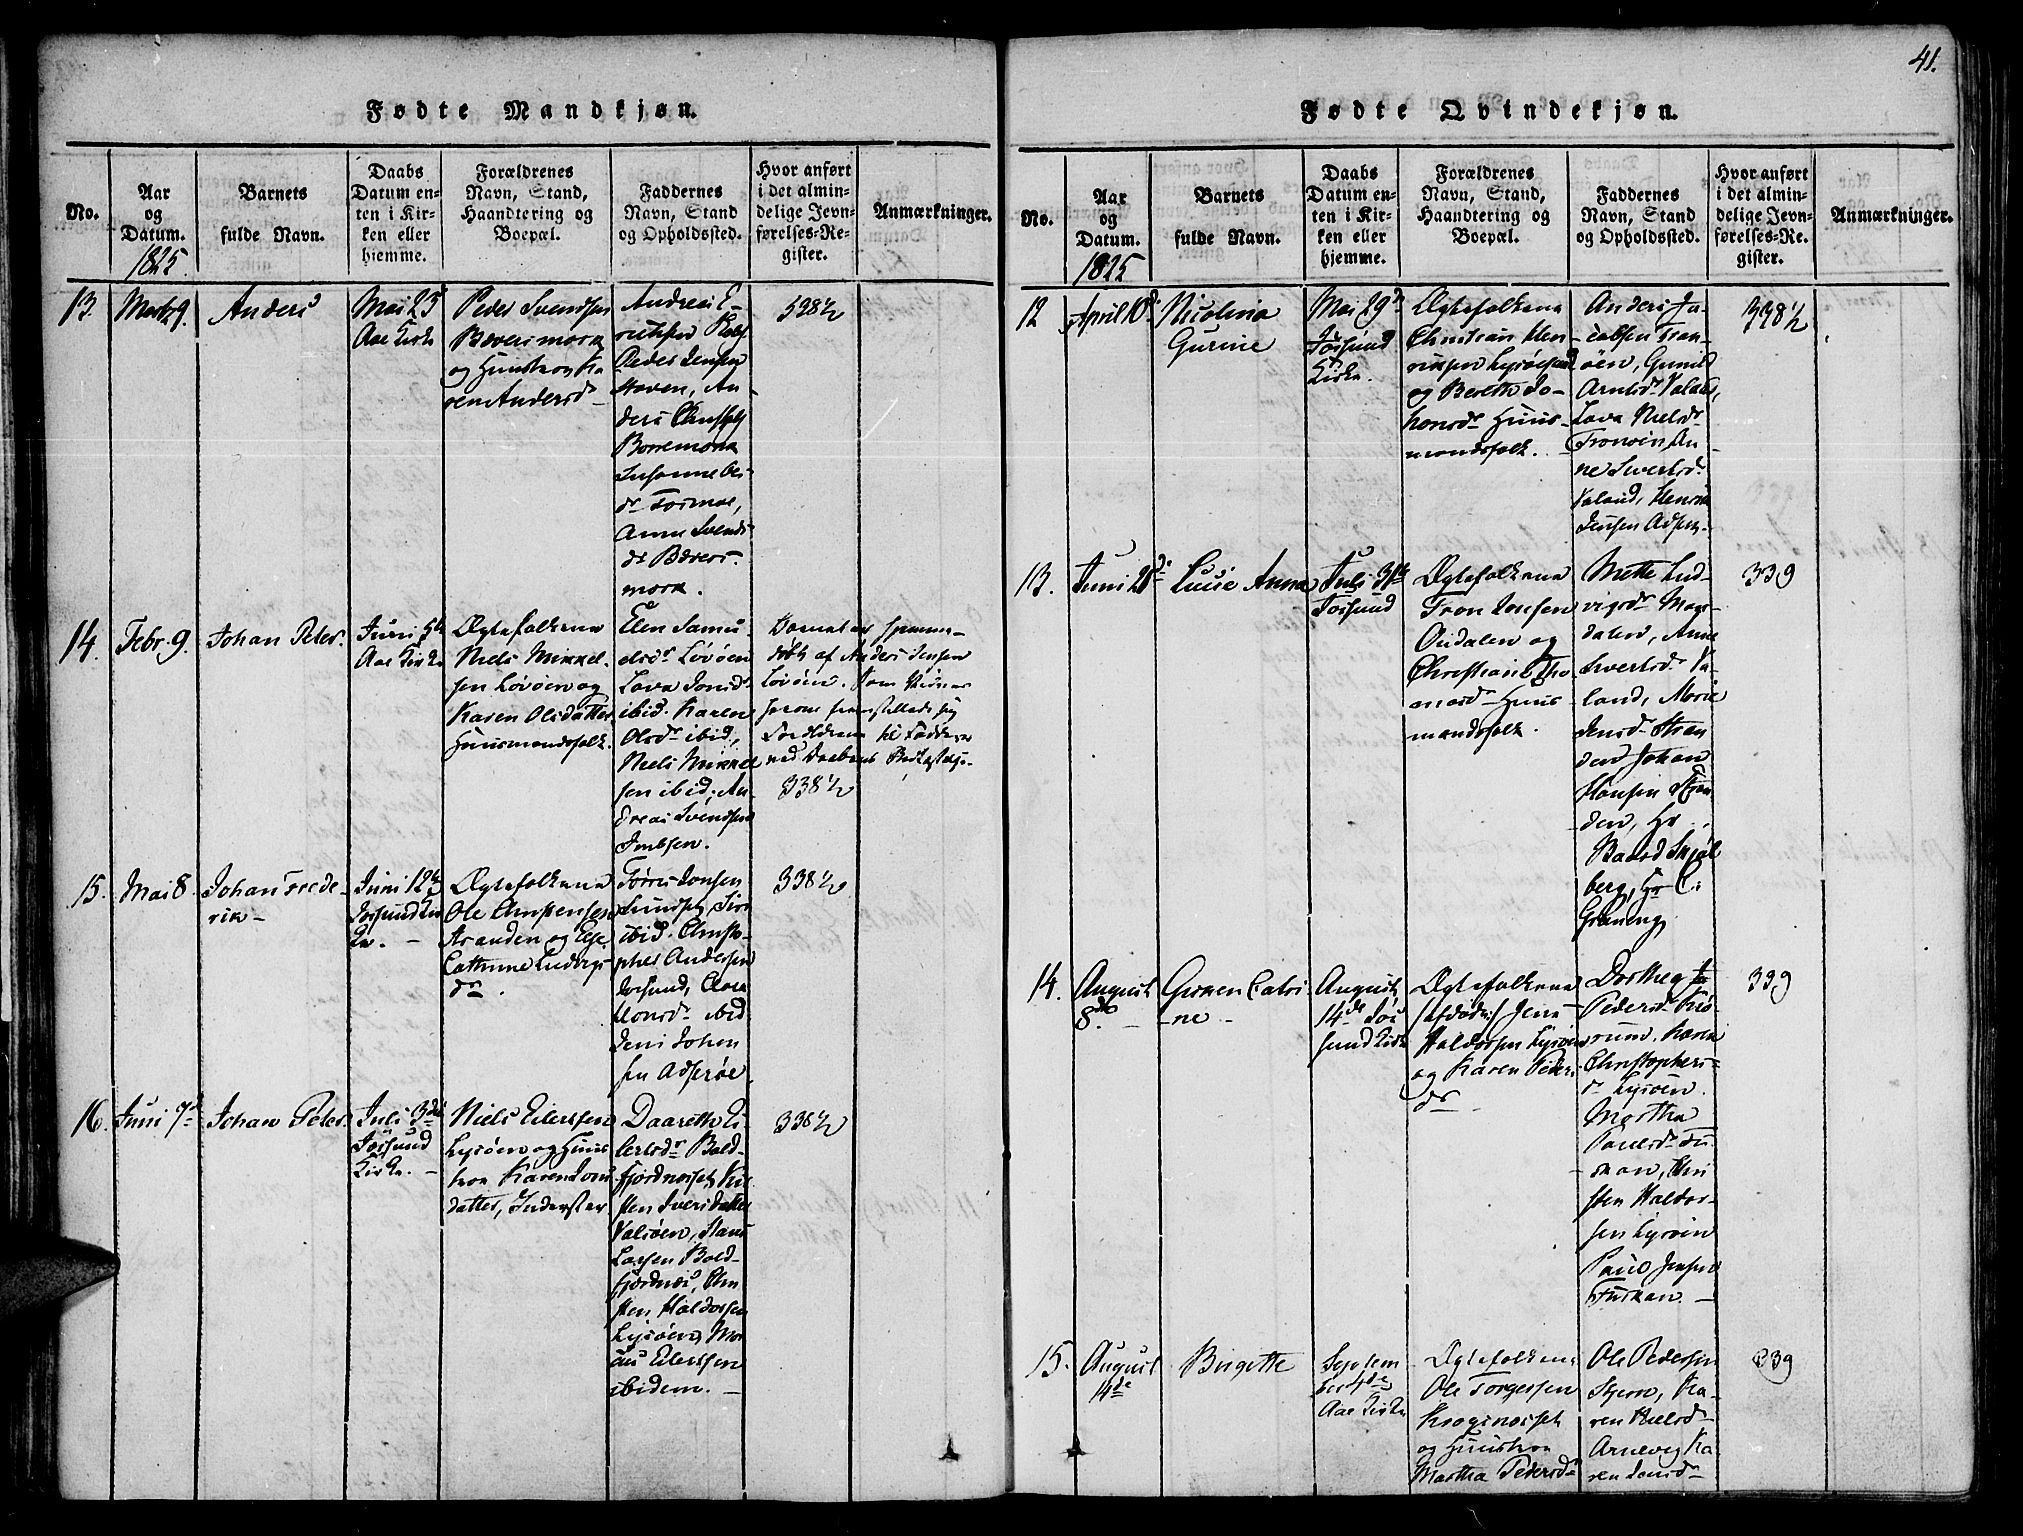 41.
Fødte Mandkjøn.
No.
Aar
og
Datum.
1825.
Barnets
fulde Navn.
Daabs
Datum en-
ten i Kir-
ken eller
hjemme.
Forældrenes
Navn, Stand,
Haandtering og
Boepæl.
Faddernes
Navn, Stand
og Opholdssted.
Hvor anført
i det almin-
delige Jevn-
førelses-Re-
gister.
Anmærkninger.
13.
Marts 9.
Anders
Mai 23
Aae Kirke
Peder Svendsen
Bæversmork
og Huustroe Ka
ren Andersd
Andreas E-
Peder Jensen
Hoven, An-
ders
Borremork
Susanne
Tormoe,
Anne Svends
dr Bævers-
mork.
528½
14.
Febr. 9.
Johan Peter.
Juni 5te
Aae Kirke
Ægtefolkene
Niels Mikkel-
sen Lovøen og
Karen Olsdatter
Huusmandsfolk.
Elen Samu-
elsdr Lovøen
Lava Jonsdr
ibid. Karen
Olsdr ibid,
Niels Mikkel
sen ibid, An-
dreas Svendsen
Barnet er hjemme-
døbt af Anders Jensen
Lovøen. Som
338½
15.
Mai 8.
Johan Frede-
rik
Juni 12te
Jøssund Kir
ke.
Ægtefolkene
Ole Christensen
Stranden og Else
Cathrine Ludvigs
dr.
Tørris Jonsen
ibid. Christo-
pher Andersen
Jøssund,
Honsdr ibid
Jens Johan
sen Adserøe
338½
16.
Juni 7de
Johan Peter
Juli 3die
Jøssund
Kirke.
Niels Eilertsen
Lysøen og Huus
troe Karen Jons
datter, Inderster
Daareth Ei-
lertsdr Bold-
fjordnesset, Kir
sten Iversdatter
Valsøen, Hans
Larsen Bold-
fjordnæs, Chri
sten Haldorsen
Lysøen, Mor
Eilertsen
ibidem.
338½
Fødte Qvindekjøn.
No.
Aar
og
Datum.
1825
Barnets
fulde Navn.
Daabs
Datum en-
ten i Kir-
ken eller
hjemme.
Forældrenes
Navn, Stand,
Haandtering og
Boepæl.
Faddernes
Navn, Stand
og Opholdssted.
Hvor anført
i det almin-
delige Jevn-
førelses-Re.
gister.
Anmærkninger.
12
April 10de
Nicolina
Gurine
Mai 29de
Jøssund
Kirke.
Ægtefolkene
Christian Hen
riksen Lysøesund
og Bereth Jo-
honsdr Huus-
mandsfolk.
Anders Ja-
cobsen Tran-
øen, Gunild
Arntsdr Valand,
Lava Nielsdr
Tranøen, An-
ne Sivertsdr
Valand, Henrik
Jensen
338½
13.
Juni 21de
Lucie Anna
Juli 31te
Jøssund
Ægtefolkene
Tron Jonsen
Oudalen og
Christiane Tho
masdr Huus
mandsfolk.
Mette Lud-
vigsdr Mage-
dalen, Anne
Sivertsdr Va-
land, Marie
Jensdr Stran
den Johan
Hansen Stran
den, Hr
Baard Skjøl
berg, Hr C.
Grøning,
339
14.
August
8de
Gunen Catri
ne
August
14de Jøs
sund Kirke
Ægtefolkene
/afdøde/ Jens
Haldorsen Lysøen
og Karen Peders
dr
Dorthea
Pedersdr
Karen
Christophers-
dr Lysøen.
Martha
Paulsdr
Chri
sten Haldor-
sen Lysøen
Paul Jensen
339
15.
August
4de
Birgitte
Septem
ber 4de
Aae Kirke
Ægtefolkene
Ole Torgersen
Krogsnesset
og Huustroe
Martha Pedersdr
Ole Pedersen
Stjern, Ka-
ren Nielsdr
Arnevig Ka
ren Jensdr
339